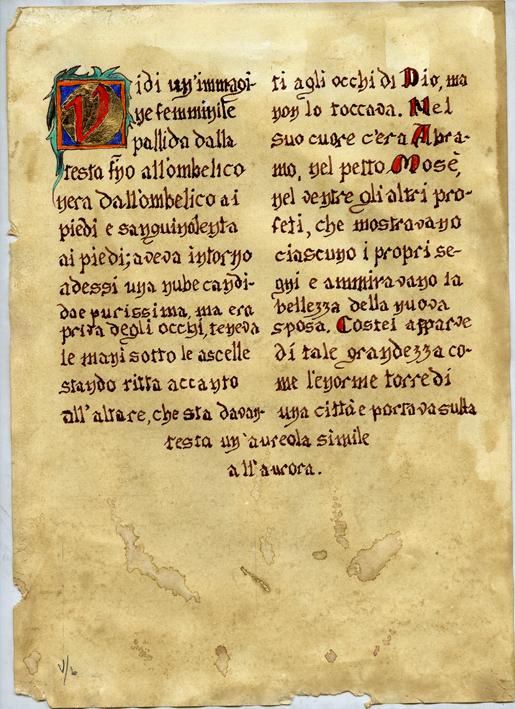 Vidi un'immagi-
ne femminile
pallida dalla
testa fino all'ombelico
nera dall'ombelico ai
piedi e sanguinolenta
ai piedi; aveva intorno
ad essi una nube candi-
da e purissima, ma era
priva degli occhi, teneva
le mani sotto le ascelle
stando ritta accanto
all'altare, che sta davan-
ti agli occhi di Dio, ma
non lo toccava. Nel
suo cuore c'era Abra-
mo, nel petto Mosè,
nel ventre gli altri pro-
feti, che mostravano
ciascuno i propri se-
gni e ammiravano la
bellezza della nuova
sposa. Costei apparve
di tale grandezza co-
me l'enorme torre di
una città e portava sulla
testa un'aureola simile
all'aurora.
V/6